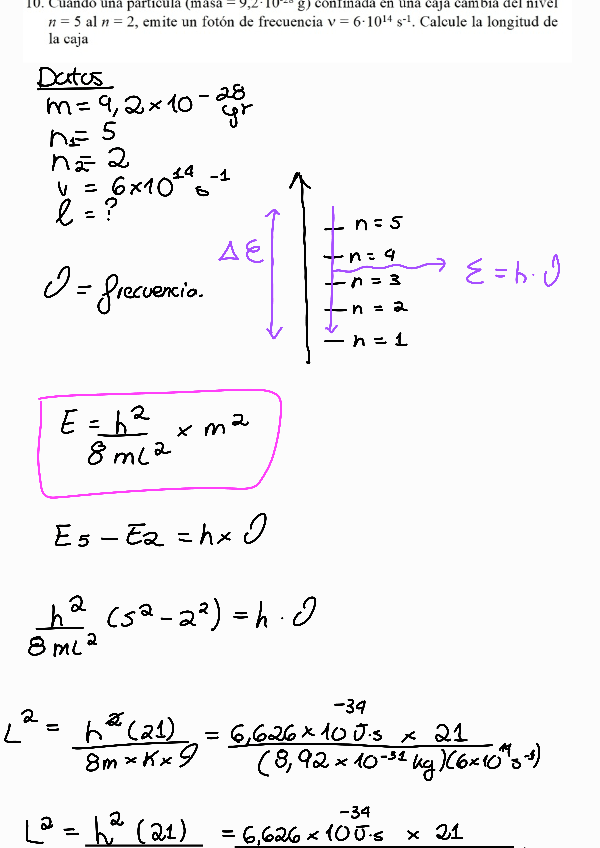 10. Cuando una partícula (masa = 9,2·10⁻²⁸ g) confinada en una caja cambia del nivel
n = 5 al n = 2, emite un fotón de frecuencia ν = 6·10¹⁴ s⁻¹. Calcule la longitud de
la caja
Datos
m = 9,2×10⁻²⁸ gr
n₁= 5
n₂= 2
v = 6×10¹⁴ s⁻¹
l = ?
n = 5
ΔE
n = 4
n = 3
E = h·υ
υ = frecuencia.
n = 2
n = 1
E = h²/8mL² × m²
E5 − E2 = h× υ
h²/8mL² (5² − 2²) = h · υ
L² = h²(21)/8m×K×υ = 6,626×10⁻³⁴ J·s × 21/(8,92×10⁻³¹ kg)(6×10¹⁴ s⁻¹)
L² = h² (21) = 6,626×10⁻³⁴ J·s × 21